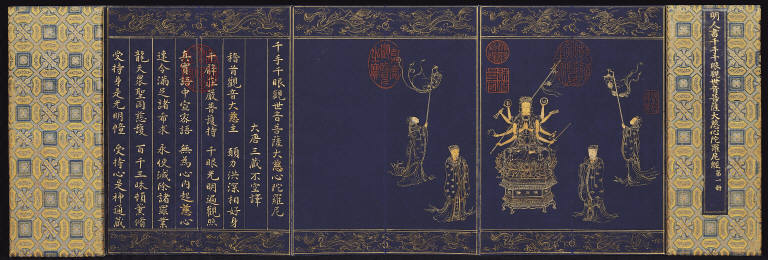 明人書千手千眼觀世音菩薩大悲心陀羅尼經 第一冊
千手千眼觀世音菩薩大悲心陀羅尼
大唐三藏不空譯
稽首觀音大悲主 願力洪深相好身
千臂莊嚴普護持 千眼光明遍觀照
真實語中宣密語 無為心內起悲心
速令滿足諸希求 永使滅除諸罪業
龍天眾聖同慈護 百千三昧頓薰修
受持身是光明幢 受持心是神通藏